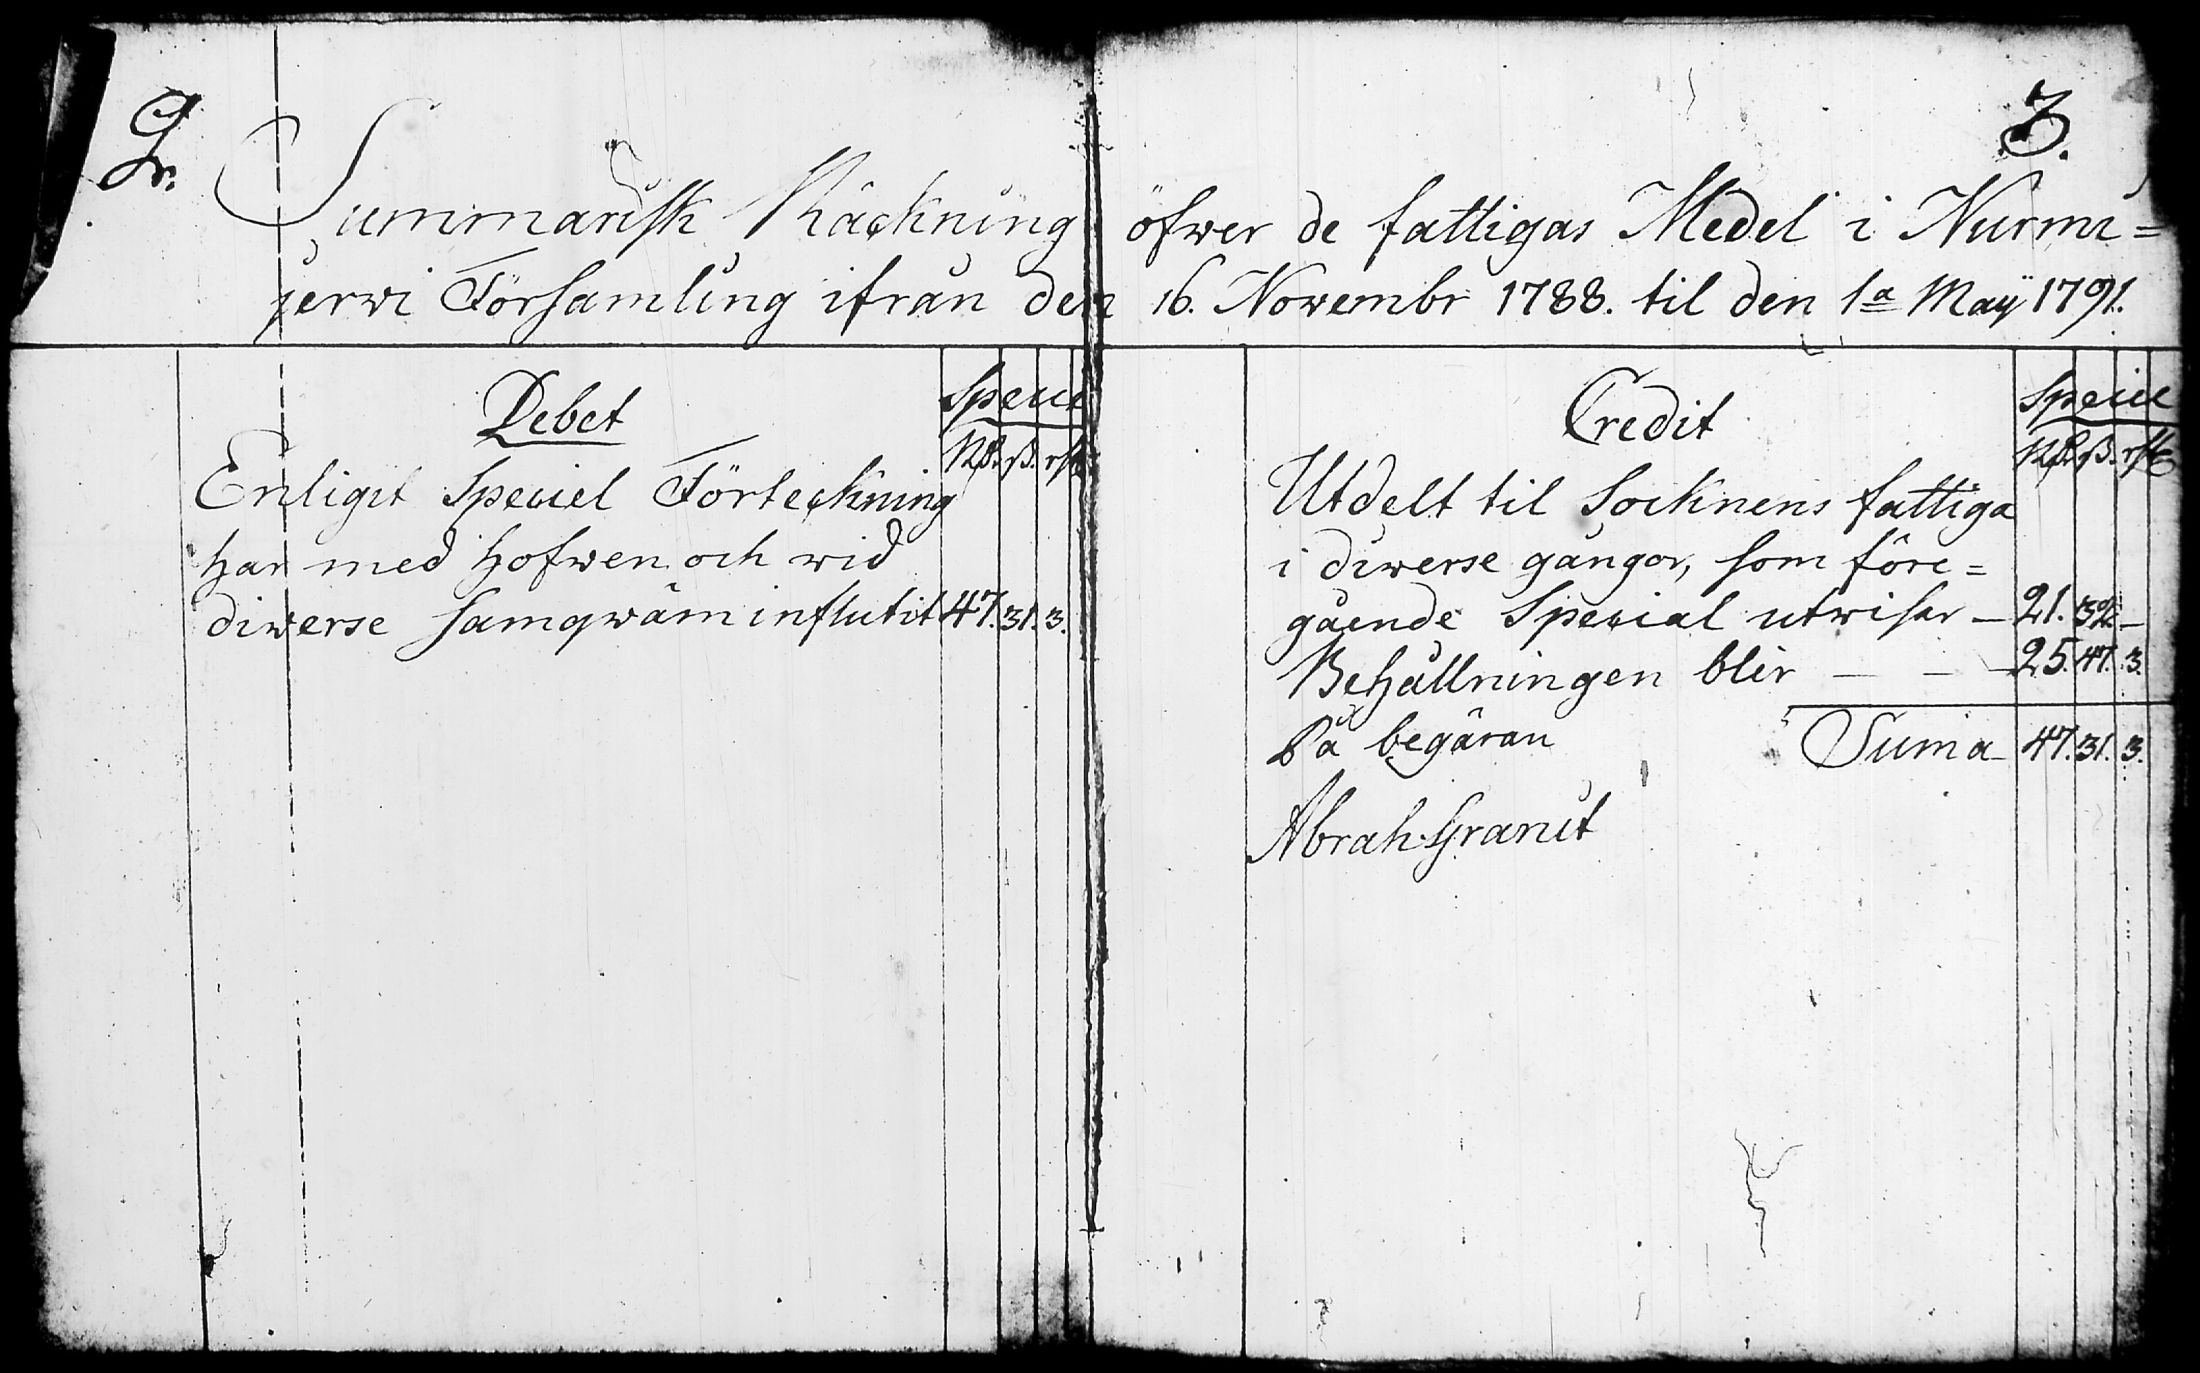 2.
3.
Summarisk Räckning öfwer de fattigas Medel i Nurmi=
jerwi Församling ifrån den 16. Novembr 1788. til den 1a Maÿ 1791.
Debet
Specie
Rd. ß. rst
Enligit Speciel Förteckning
har med Hofwen och wid
diverse samqwäm influtit 47. 31. 3.
Credit
Specie
Rd. ß. rst
Utdelt til Socknens fattiga
i diverse gångor, som före=
gående Special utwisar — 21. 32 —
Behållningen blir — — — 25. 47. 3.
På begäran Suma 47. 31. 3.
Abrah. Granit